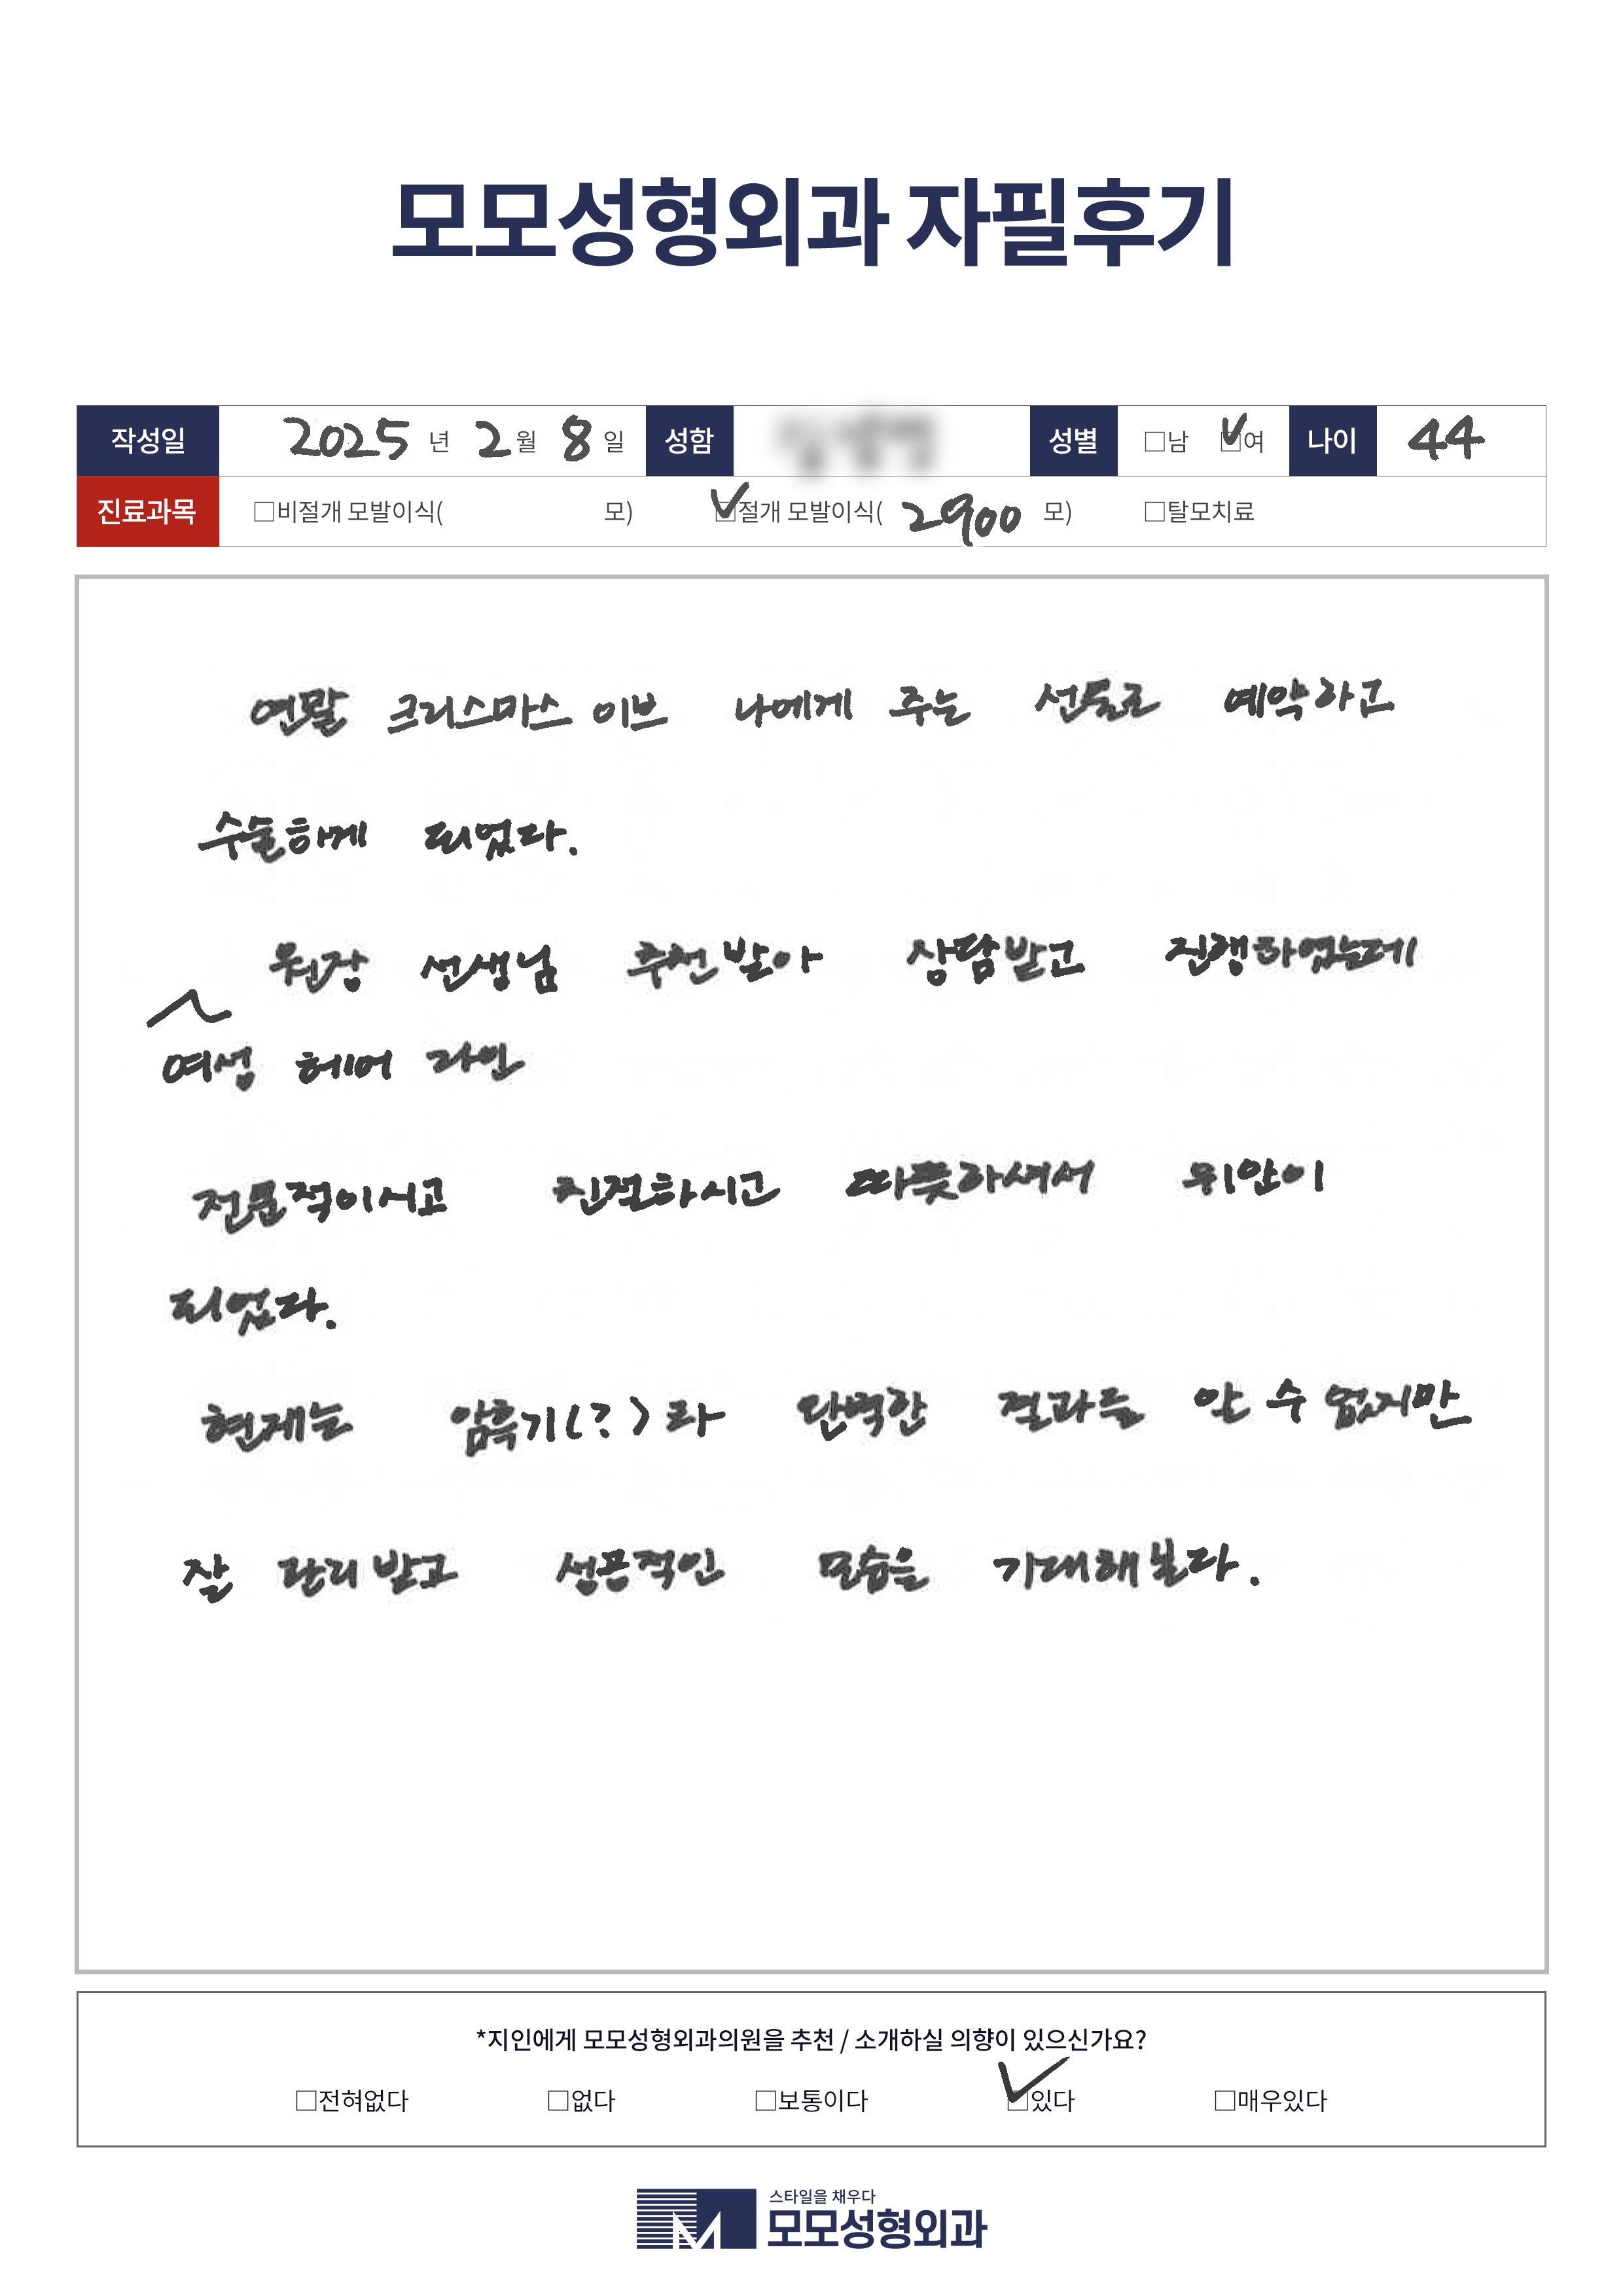 모모성형외과 자필후기
작성일 2025 년 2 월 8 일 성함 성별 □남 ☑여 나이 44
진료과목 □비절개 모발이식( 모) ☑절개 모발이식( 2900 모) □탈모치료
연말 크리스마스 이브 나에게 주는 선물로 예약하고
수술하게 되었다.
원장 선생님 추천 받아 상담받고 진행하였는데
여성 헤어 라인
전문적이시고 친절하시고 따뜻하셔서 위안이
되었다.
현재는 암흑기(?)라 완벽한 결과를 알 수 없지만
잘 관리 받고 성공적인 모습을 기대해 본다.
*지인에게 모모성형외과의원을 추천 / 소개하실 의향이 있으신가요?
□전혀없다 □없다 □보통이다 ☑있다 □매우있다
스타일을 채우다
모모성형외과